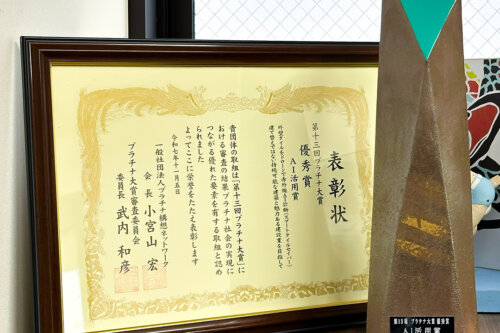 表彰状
第十三回プラチナ大賞
優秀賞
AI活用賞
建て替えではない持続可能な建築と魅力ある建設業を目指して
貴団体の取組は「第十三回プラチナ大賞」に
おける審査の結果プラチナ社会の実現に
つながる優れた要素を有する取組と認め
られました
よってここに栄誉をたたえ表彰します
令和七年十一月五日
一般社団法人プラチナ構想ネットワーク
会長 小宮山 宏
プラチナ大賞審査委員会
委員長 武内 和彦
第13回 プラチナ大賞 優秀賞
AI活用賞